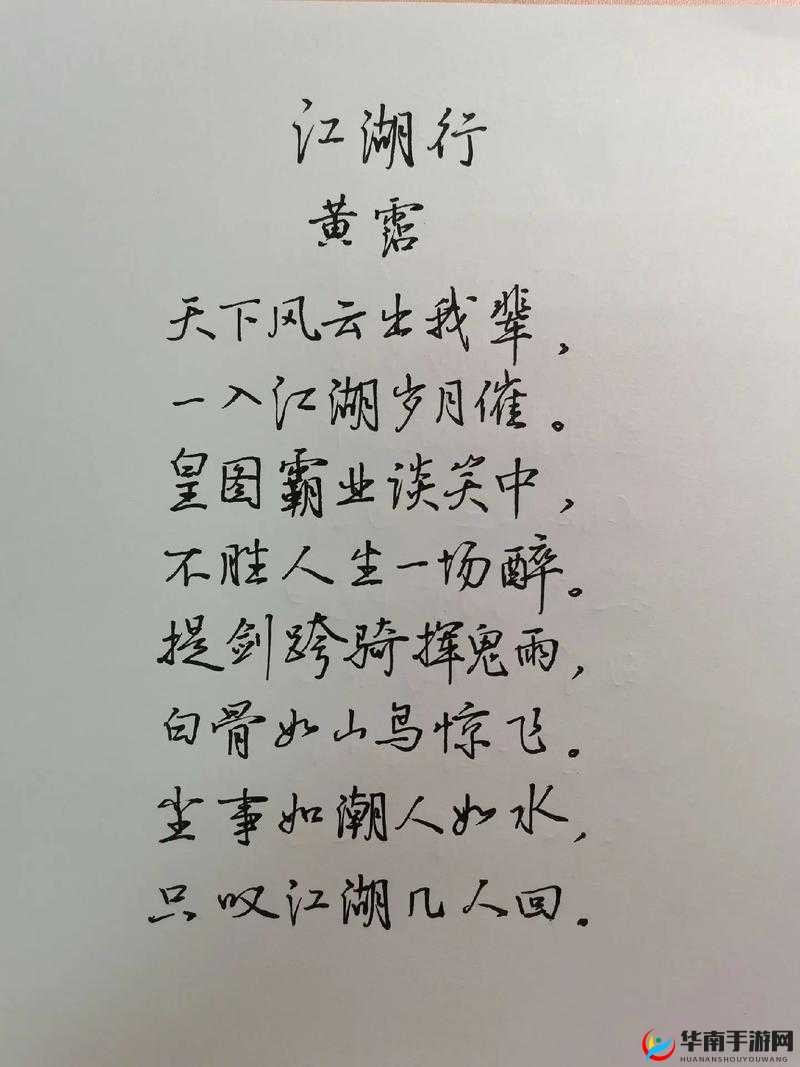 江湖行
黄霑
天下风云出我辈，
一入江湖岁月催。
皇图霸业谈笑中，
不胜人生一场醉。
提剑跨骑挥鬼雨，
白骨如山鸟惊飞。
尘事如潮人如水，
只叹江湖几人回。
华南手游网
HUANANSHOUYOUWANG